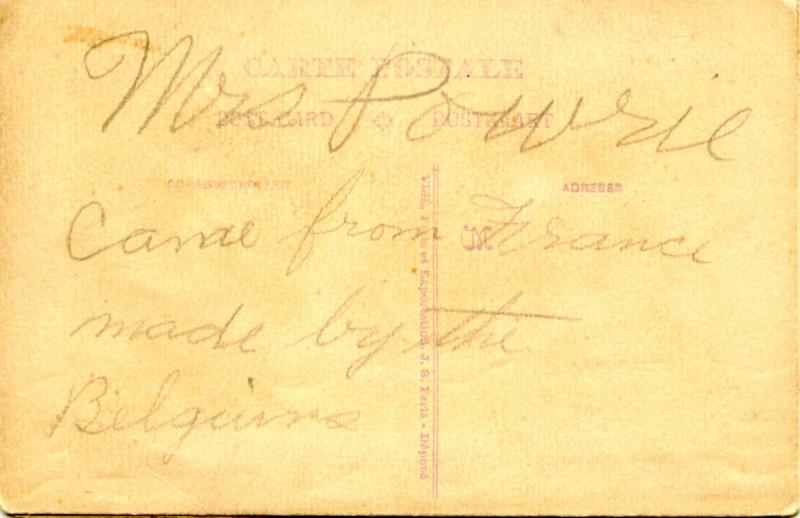 CARTE POSTALE
POST CARD POSTKAART
Mrs Powrie
CORRESPONDANCE
ADRESSE
Came from France
M
made by the
Belgiums
Visé, Paris et Exportation. J. S. Paris - Déposé